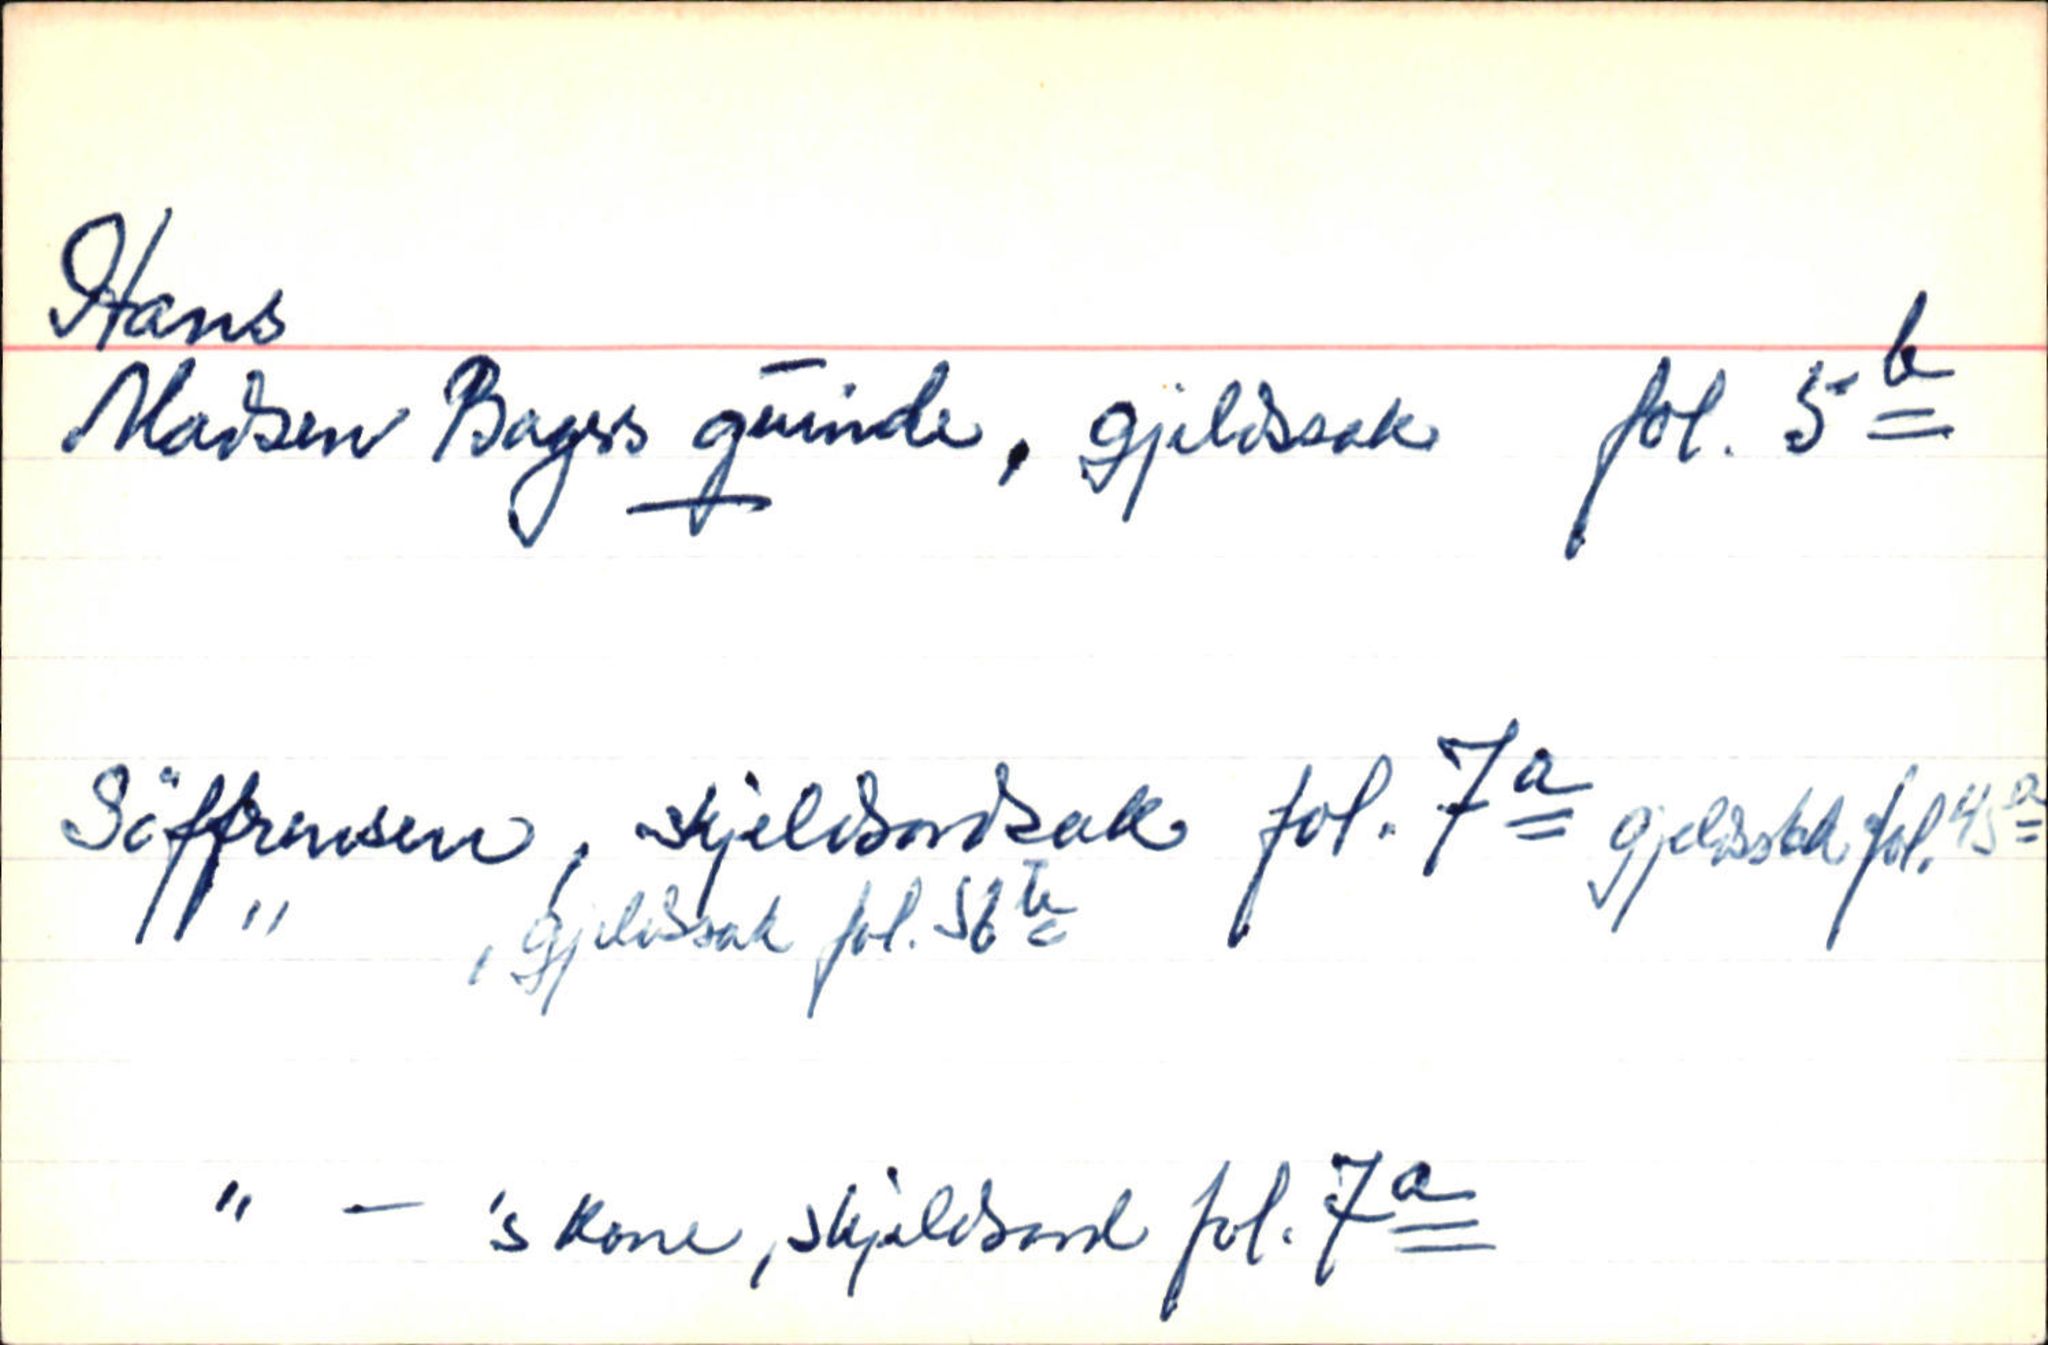 Hans
Madsen Bagers quinde, gjeldssak fol. 5b
Söffrensen, skjeldsordsak fol. 7a gjeldssak fol. 45a
" , gjeldssak fol. 56b
" — 's kone, skjeldsord fol. 7a